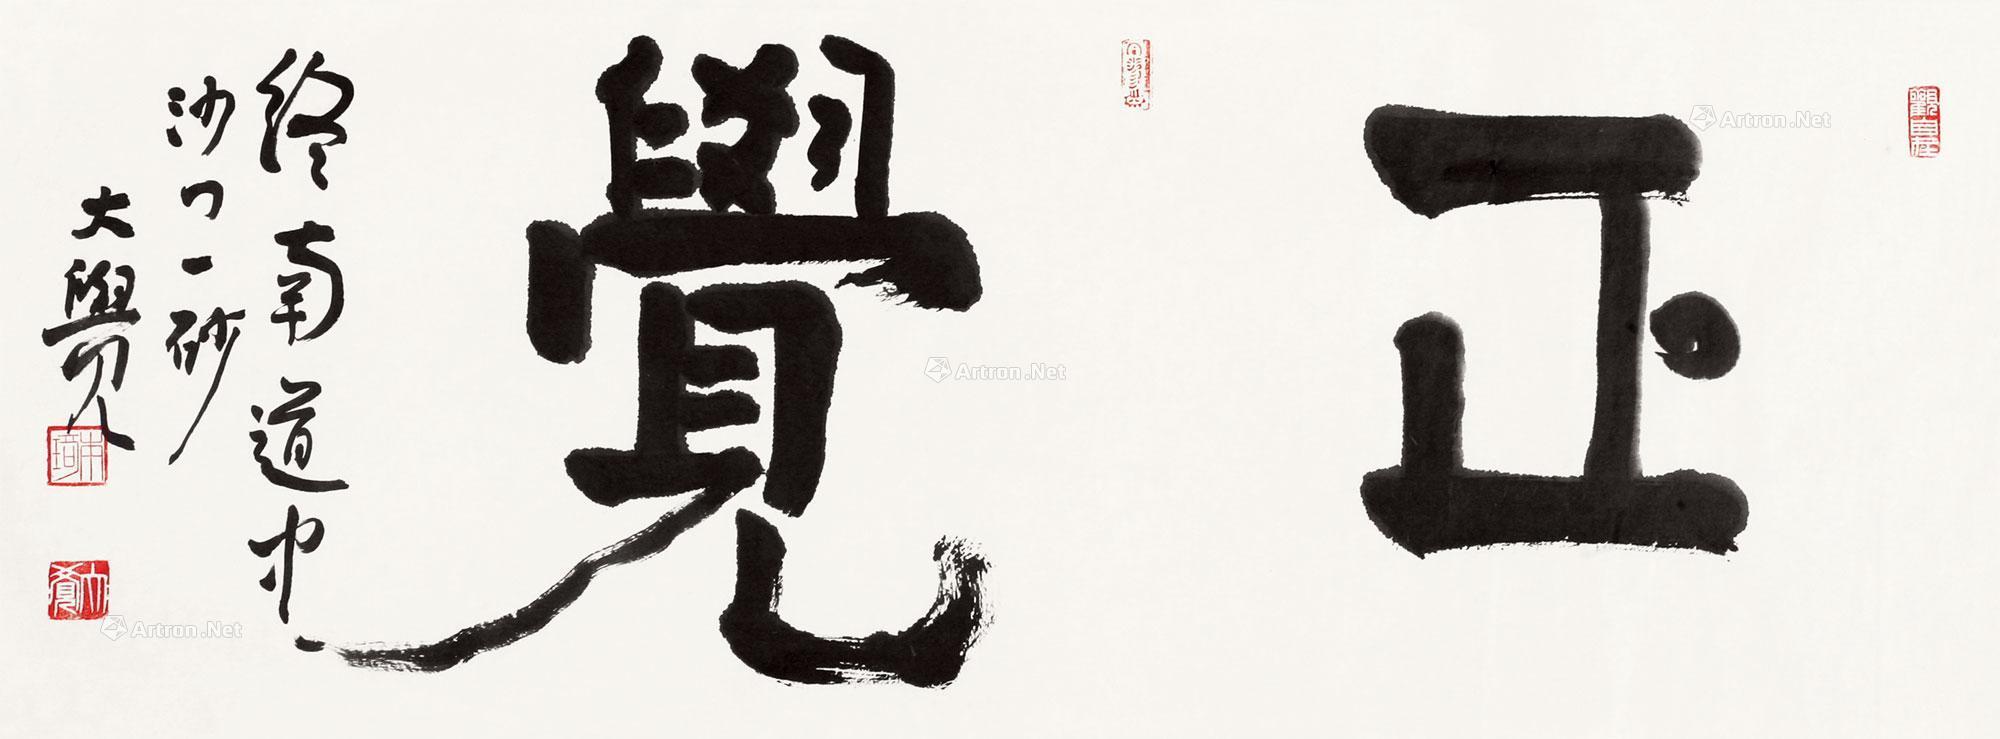 正覺
終南道中
沙门一砂
大覺
觀自在
大覺
Artron.Net
Artron.Net
Artron.Net